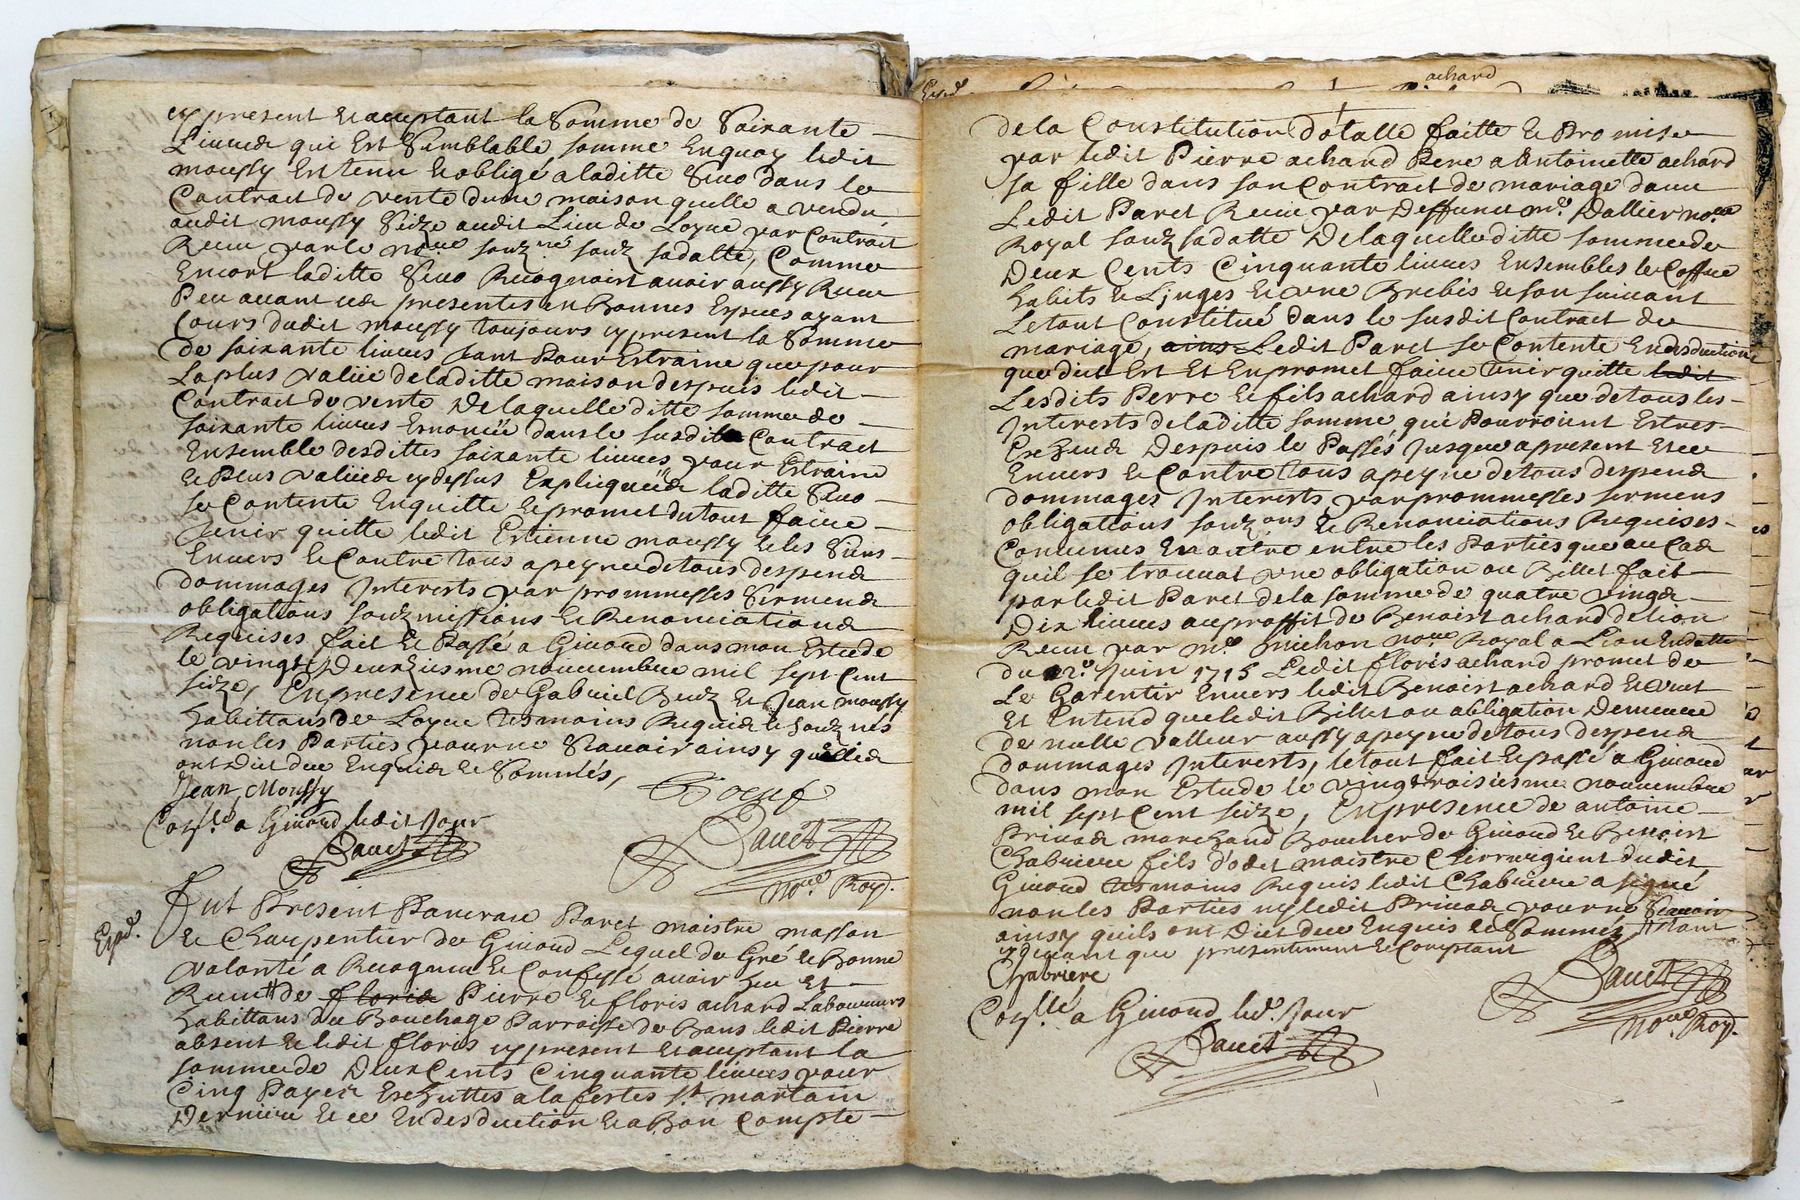 cy present et acceptant la Somme de Soixante
Livres qui Est Semblable somme Enquoy ledit
moussy Est tenu et obligé a laditte Sivo dans le
Contract de vente dune maison quelle a vendu
audit moussy Size audit Lieu de Loyre par Contract
Receu par le no.re souz.né souz sa datte, Comme
Encort laditte Sivo Recognoist avoir aussy Receu
Peu avant ces presentes en Bonnes Especes ayant
Cours dudit moussy toujours cy present la Somme
de soixante livres tant Pour Estraine que pour
La plus valüe de laditte maison despuis ledit
Contract de vente De laquelle ditte somme de
soixante livres Enoncée dans le susdit Contract
Ensemble desdittes soixante livres pour Estraine
et Plus valüe cy dessus Expliquéé laditte Sivo
se Contente Enquitte et promet du tout faire
tenir quitte ledit Estienne moussy et les Siens
Envers et Contre tous a peyne de tous despens
dommages Interests par prommesses Sermens
obligations souzmissions et Renonciations
Requises. fait et Passé a Givord dans mon Estude
le vingt Deuxiesme novembre mil sept Cent
seize, En presence de Gabriel et Jean moussy
habittans de Loyre tesmoins Requis et souz nés
non les Parties pour ne Scavoir ainsy quelles
ont Dit due Enquis et Sommés,
Jean Moussy
Con.llé a Givord ledit Jour
Expé.
Fut Present Pancrasse Paret maistre masson
et Charpentier de Givord Lequel de Gré et Bonne
volonté a Recognu et Confessé avoir Eu et
Receu # de floris Pierre et floris achard Laboureurs
habittans du Bouchage Parroisse de Bans ledit Pierre
absent et ledit floris cy present et acceptant la
somme de Deux Cents Cinquante livres pour
Cinq Payes Escheuttes a la festes St martain
Derniere et ce En desduction et a Bon Compte
achard
Expé.
de la Constitution Dotalle faitte et Promise
par ledit Pierre achard Pere a Antoinette achard
sa fille dans son Contract de mariage d'avec
Ledit Paret Receu par Deffunct me. Dallier no.re
Royal souz sa datte De laquelle ditte somme de
Deux Cents Cinquante livres Ensembles le Coffre
habits et Linges et une Brebis et son suivant
Le tout Constitué dans le susdit Contract de
mariage, ains Ledit Paret se Contente En desduction
que dict Est Et En promet faire tenir quitte ledit
Lesdits Perre et fils achard ainsy que de tous les
Interests de laditte somme qui Pourroient Estres
Escheus Despuis le Passés Jusque a present Et ce
Envers et Contre tous a peyne de tous despens
dommages Interests par prommesses sermens
obligations souz.ons et Renonciations Requises
Convenus En outre entre les Parties que au Cas
quil se trouvat une obligation ou Billet fait
par ledit Paret de la somme de quatre vingts
Dix livres au proffit de Benoist achard de lion
Receu par me. Michon no.re Royal a Lion En datte
du Juin 1715 Ledit floris achard promet de
Le Garentir Envers ledit Benoist achard et veut
Et Entend que ledit Billet ou obligation Demeure
de nulle valleur aussy a peyne de tous despens
dommages Interests, le tout fait et passé a Givord
dans mon Estude le vingt troisiesme novembre
mil sept Cent seize, En presence de antoine
Privas marchand Boucher de Givord et Benoist
Chabriere fils d'odet maistre Chirurgient dudit
Givord tesmoins Requis ledit Chabriere a signé
non les Parties ny ledit Privas pour ne Scavoir
ainsy quils ont Dict due Enquis et Sommés, # tant
que presentement et Comptant
Chabriere
no.re Roy.
Con.llé a Givord led. Jour